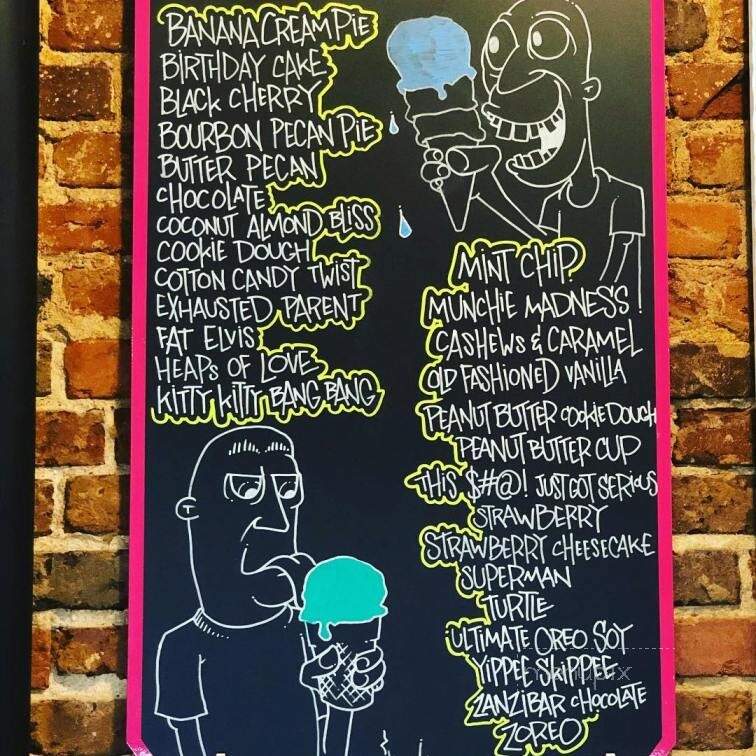 BANANA CREAM PIE
BIRTHDAY CAKE
BLACK CHERRY
BOURBON PECAN PIE
BUTTER PECAN
CHOCOLATE
COCONUT ALMOND BLISS
COOKIE DOUGH
COTTON CANDY TWIST
EXHAUSTED PARENT
FAT ELVIS
HEAPS OF LOVE
KITTY KITTY BANG BANG
MINT CHIP
MUNCHIE MADNESS
CASHEWS & CARAMEL
OLD FASHIONED VANILLA
PEANUT BUTTER COOKIE DOUGH
PEANUT BUTTER CUP
THIS $#@! JUST GOT SERIOUS
STRAWBERRY
STRAWBERRY CHEESECAKE
SUPERMAN
TURTLE
ULTIMATE OREO SOY
YIPPEE SKIPPEE
ZANZIBAR CHOCOLATE
ZOREO